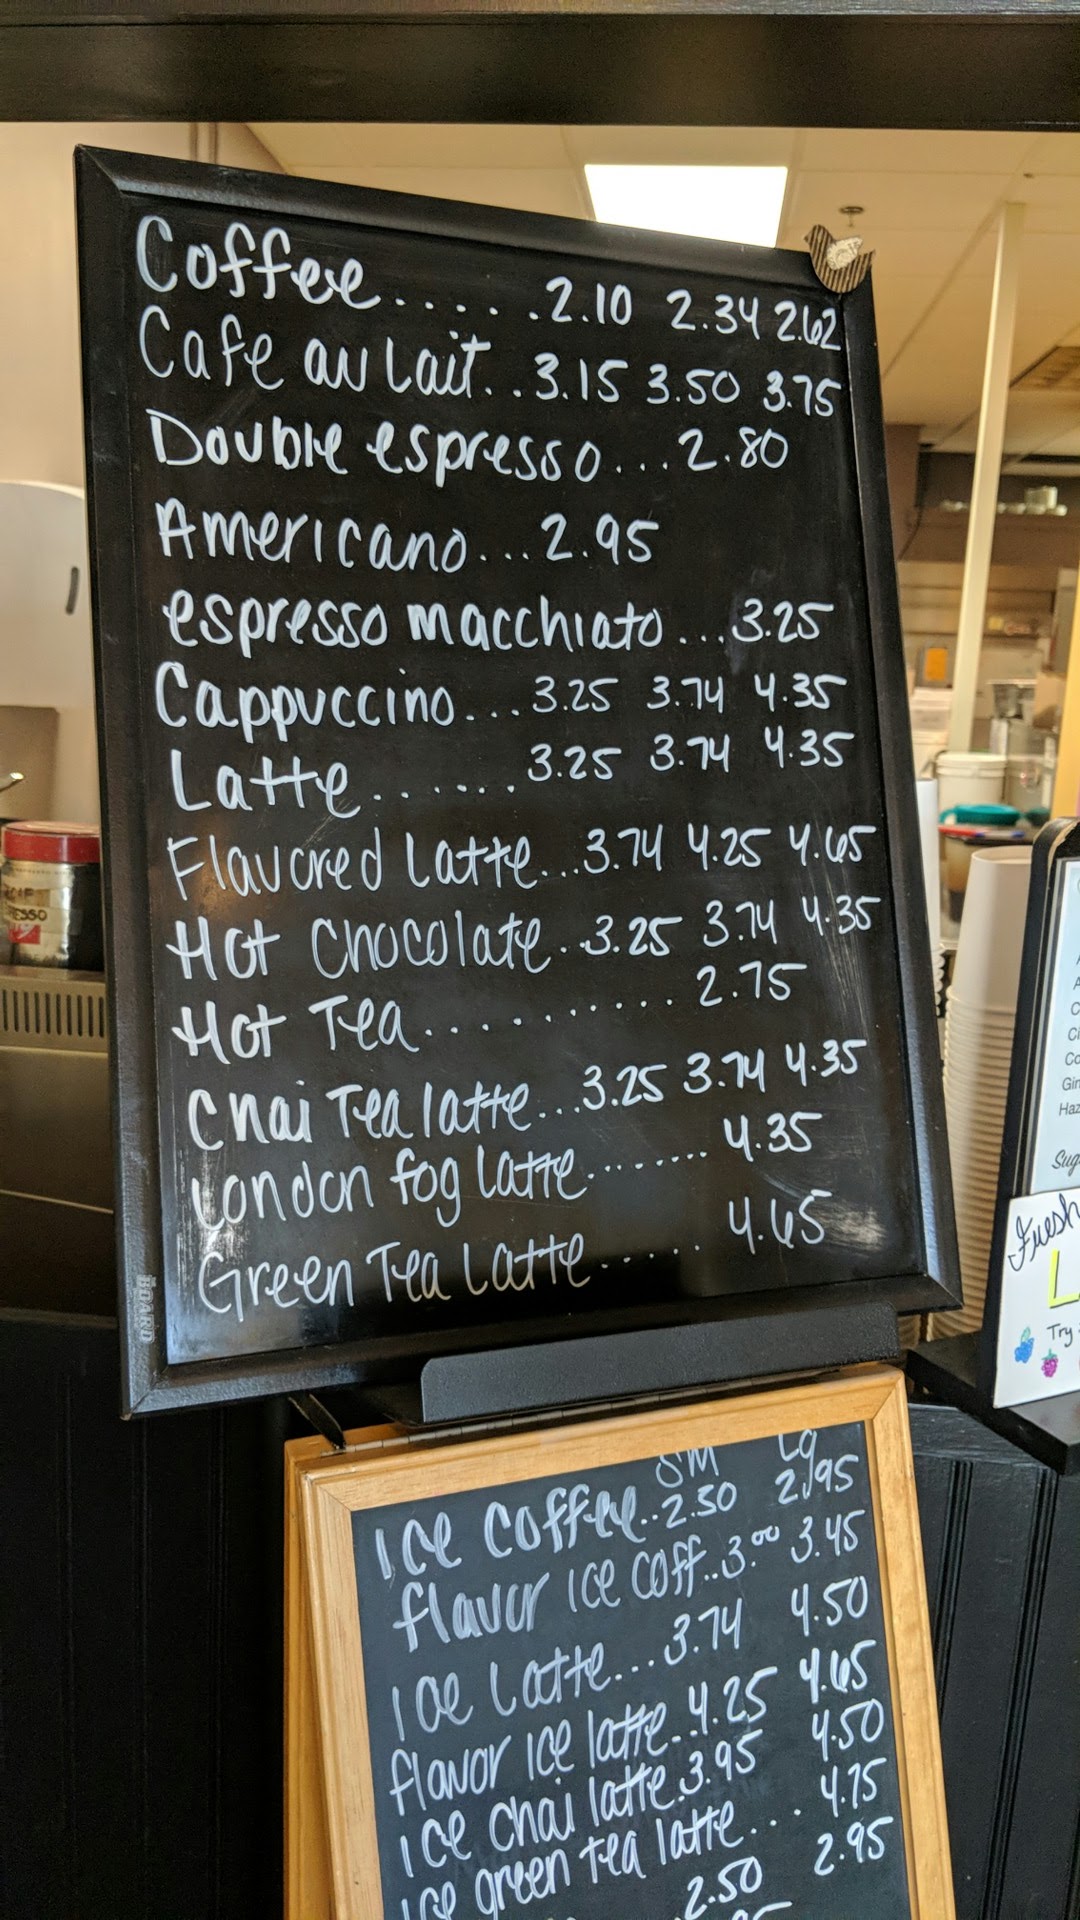 Coffee.....2.10 2.34 2.62
Cafe au Lait..3.15 3.50 3.75
Double espresso...2.80
Americano...2.95
espresso macchiato...3.25
Cappuccino...3.25 3.74 4.35
Latte......3.25 3.74 4.35
Flavored Latte...3.74 4.25 4.65
Hot Chocolate..3.25 3.74 4.35
Hot Tea..........2.75
Chai Tea latte...3.25 3.74 4.35
London fog Latte........4.35
Green Tea Latte.....4.65
BOARD
SM Lg
Ice Coffee..2.50 2.95
flavor ice coff..3.00 3.45
Ice Latte...3.74 4.50
flavor ice latte..4.25 4.65
ice chai latte.3.95 4.50
ice green tea latte... 4.75
2.50 2.95
Fresh
Try